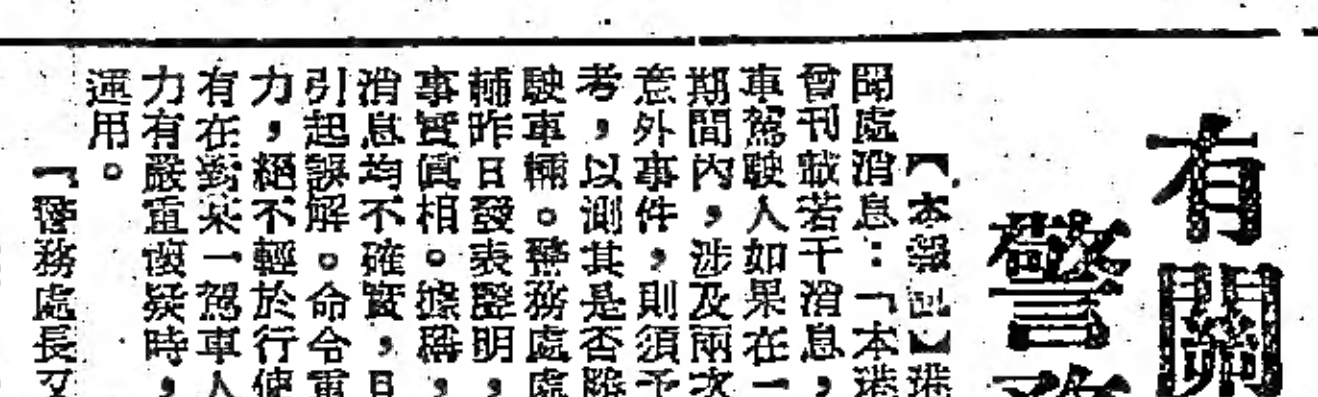 有關
警務
【本報訊】港
聞處消息：「本港
曾刊載若干消息，
車駕駛人如果在一
期間內，涉及兩次
意外事件，則須予
考，以測其是否勝
駛車輛。警務處處
輔昨日發表聲明，
事實真相。據稱，
消息均不確實，且
引起誤解。命令重
力，絕不輕於行使
有在對某一駕車人
力有嚴重懷疑時，
運用。
「警務處長又